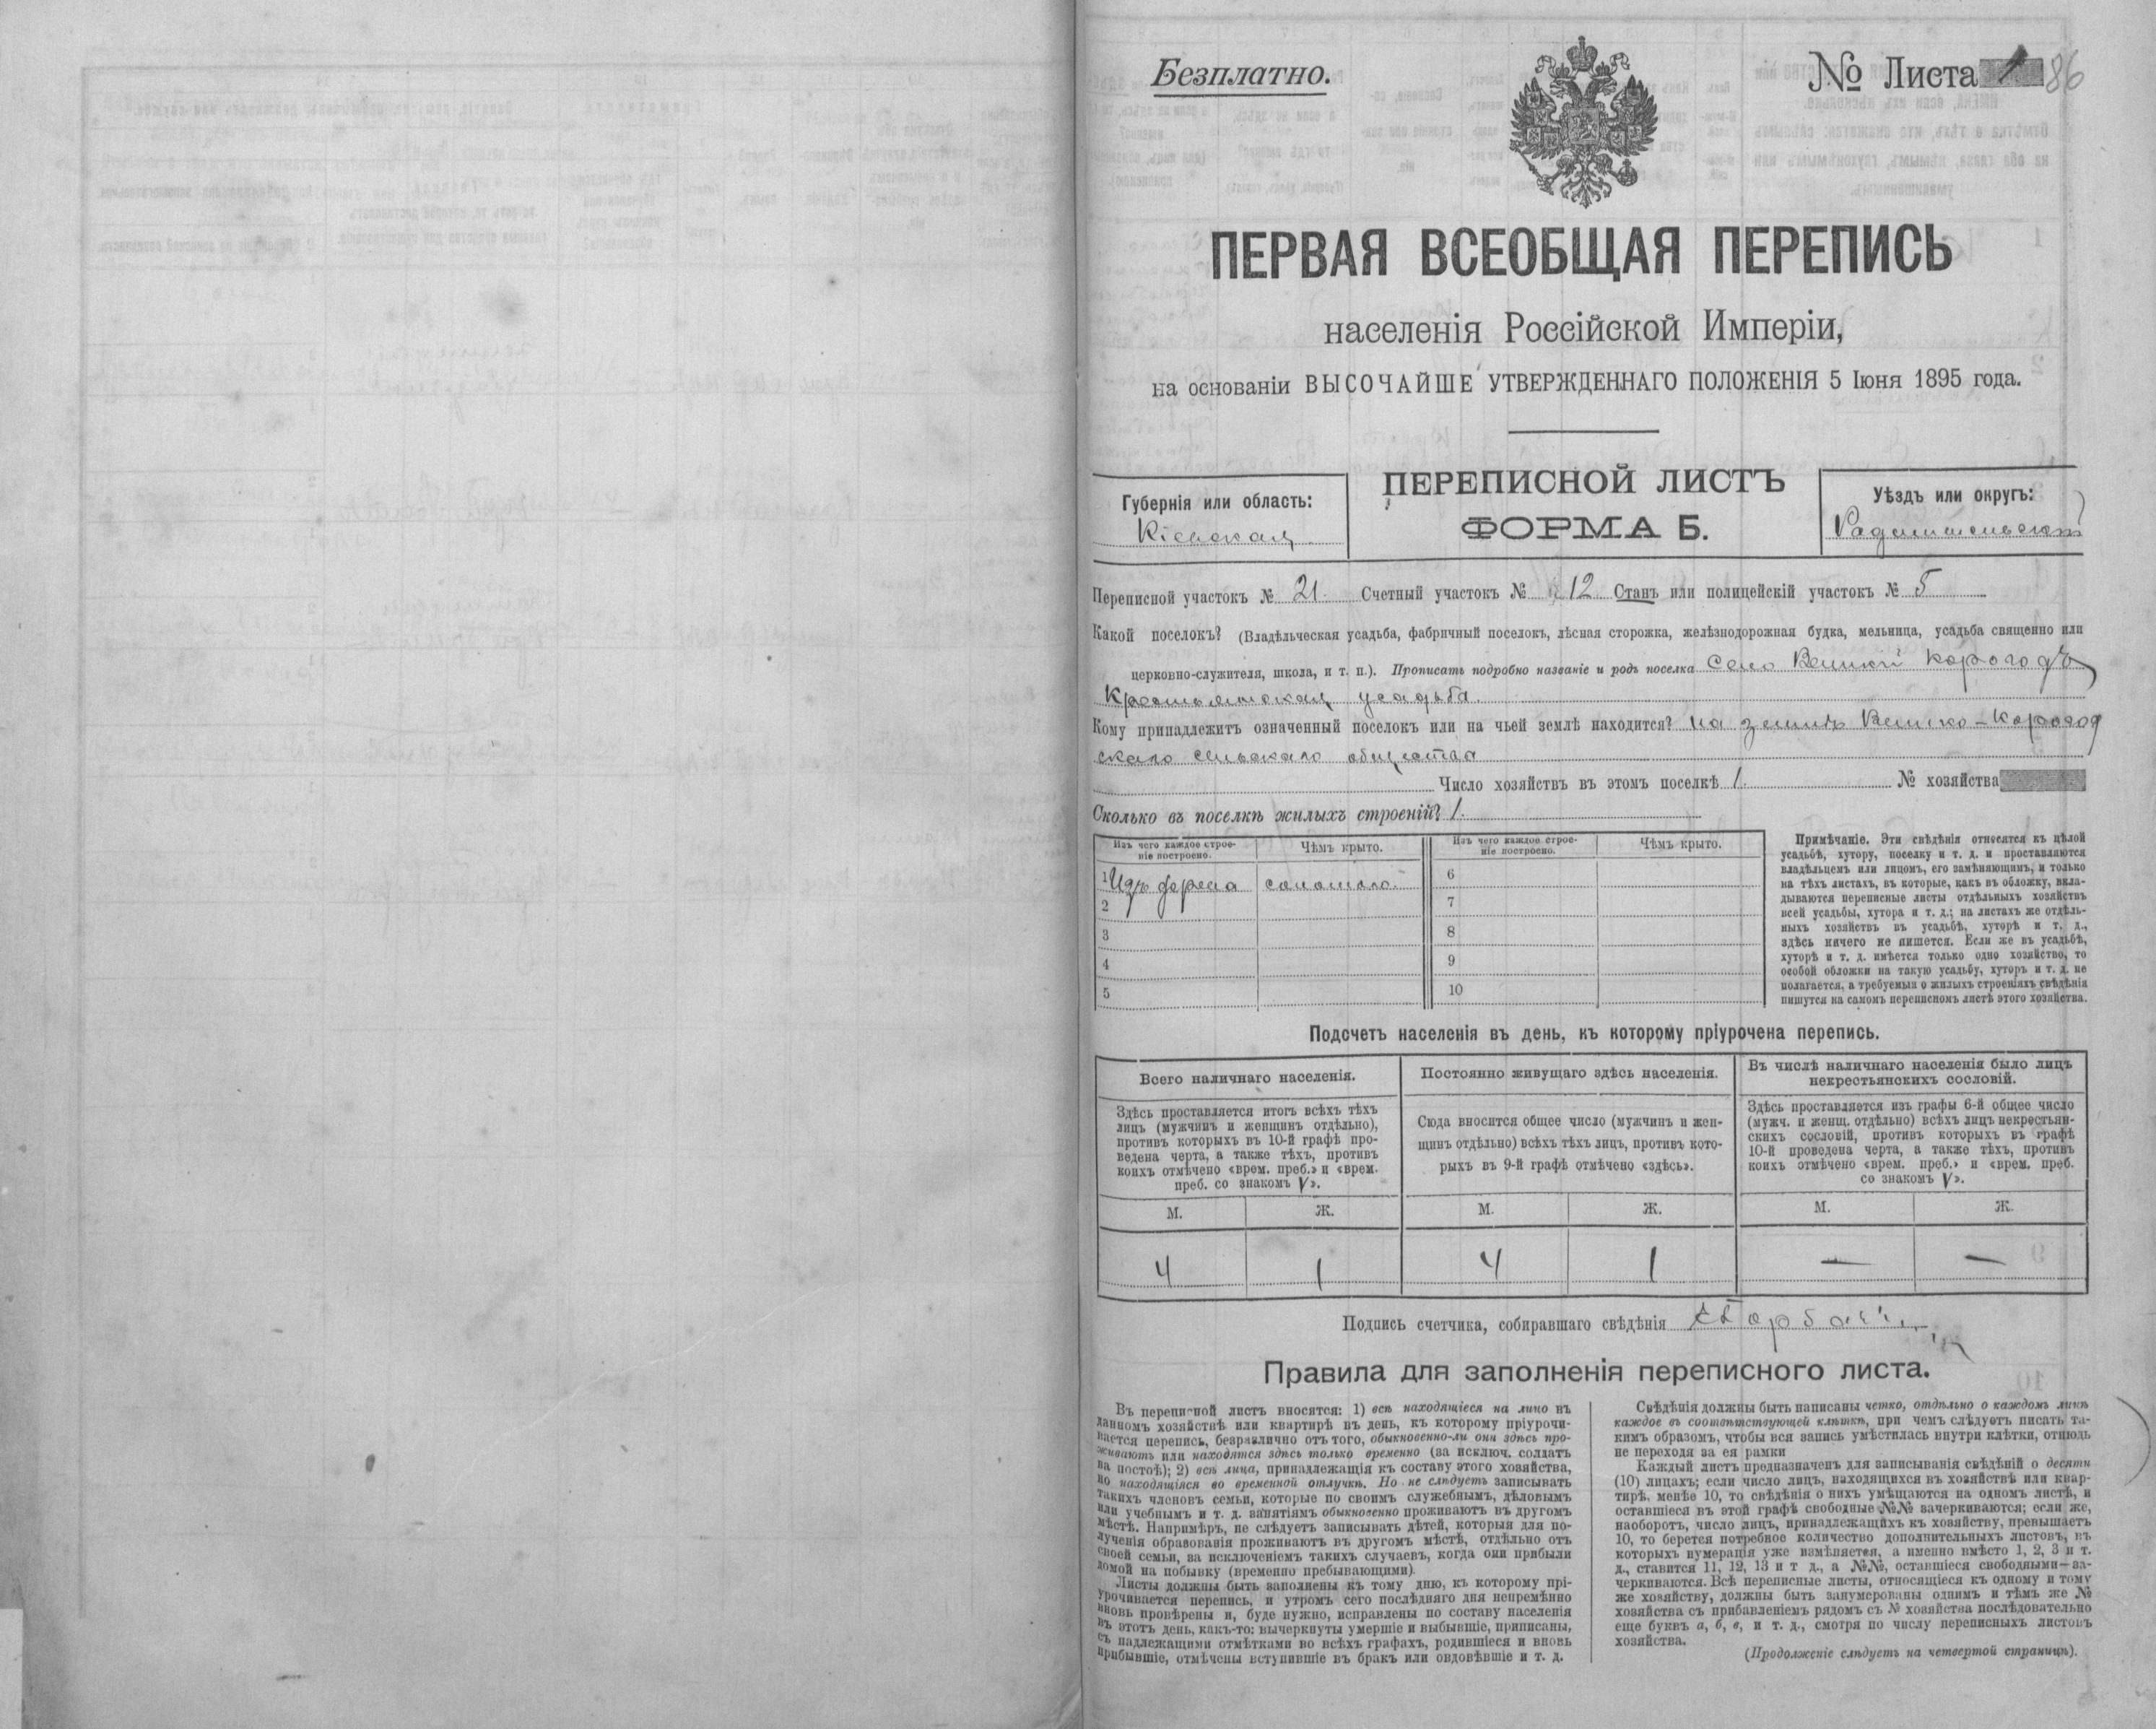 Безплатно.
№ Листа 86
ПЕРВАЯ ВСЕОБЩАЯ ПЕРЕПИСЬ
населенія Россійской Имперіи,
на основаніи ВЫСОЧАЙШЕ УТВЕРЖДЕННАГО ПОЛОЖЕНІЯ 5 Іюня 1895 года.
Губернія или область:
Кіевская
ПЕРЕПИСНОЙ ЛИСТЪ
ФОРМА Б.
Уѣздъ или округъ:
Радомысльскій
Переписной участокъ № 21. Счетный участокъ № 12 Станъ или полицейскій участокъ № 5
Какой поселокъ? (Владѣльческая усадьба, фабричный поселокъ, лѣсная сторожка, желѣзнодорожная будка, мельница, усадьба священно или
церковно-служителя, школа, и т. п.). Прописать подробно названіе и родъ поселка Село Великій Корогодъ
Крестьянская усадьба.
Кому принадлежитъ означенный поселокъ или на чьей землѣ находится? на землѣ Велико-Корогод
скаго сельскаго общества
Число хозяйствъ въ этомъ поселкѣ 1. № хозяйства
Сколько въ поселкѣ жилыхъ строеній? 1.
Изъ чего каждое строе-
ніе построено.
Чѣмъ крыто.
Изъ чего каждое строе-
ніе построено.
Чѣмъ крыто.
1 Изъ дерева соломою.
2
3
4
5
6
7
8
9
10
Примѣчаніе. Эти свѣдѣнія относятся къ цѣлой
усадьбѣ, хутору, поселку и т. д. и проставляются
владѣльцемъ или лицомъ, его замѣняющимъ, и только
на тѣхъ листахъ, въ которые, какъ въ обложку, вкла-
дываются переписные листы отдѣльныхъ хозяйствъ
всей усадьбы, хутора и т. д.; на листахъ же отдѣль-
ныхъ хозяйствъ въ усадьбѣ, хуторѣ и т. д.,
здѣсь ничего не пишется. Если же въ усадьбѣ,
хуторѣ и т. д. имѣется только одно хозяйство, то
особой обложки на такую усадьбу, хуторъ и т. д. не
полагается, а требуемыя о жилыхъ строеніяхъ свѣдѣнія
пишутся на самомъ переписномъ листѣ этого хозяйства.
Подсчетъ населенія въ день, къ которому пріурочена перепись.
Всего наличнаго населенія.
Здѣсь проставляется итогъ всѣхъ тѣхъ
лицъ (мужчинъ и женщинъ отдѣльно),
противъ которыхъ въ 10-й графѣ про-
ведена черта, а также тѣхъ, противъ
коихъ отмѣчено «врем. преб.» и «врем.
преб. со знакомъ V».
М. Ж.
4 1
Постоянно живущаго здѣсь населенія.
Сюда вносится общее число (мужчинъ и жен-
щинъ отдѣльно) всѣхъ тѣхъ лицъ, противъ кото-
рыхъ въ 9-й графѣ отмѣчено «здѣсь».
М. Ж.
4 1
Въ числѣ наличнаго населенія было лицъ
некрестьянскихъ сословій.
Здѣсь проставляется изъ графы 6-й общее число
(мужч. и женщ. отдѣльно) всѣхъ лицъ некрестьян-
скихъ сословій, противъ которыхъ въ графѣ
10-й проведена черта, а также тѣхъ, противъ
коихъ отмѣчено «врем. преб.» и «врем. преб.
со знакомъ V».
М. Ж.
— —
Подпись счетчика, собиравшаго свѣдѣнія
Правила для заполненія переписного листа.
Въ переписной листъ вносятся: 1) всѣ находящіеся на лицо въ
данномъ хозяйствѣ или квартирѣ въ день, къ которому пріурочи-
вается перепись, безразлично отъ того, обыкновенно-ли они здѣсь про-
живаютъ или находятся здѣсь только временно (за исключ. солдатъ
на постоѣ); 2) всѣ лица, принадлежащія къ составу этого хозяйства,
но находящіяся во временной отлучкѣ. Но не слѣдуетъ записывать
такихъ членовъ семьи, которые по своимъ служебнымъ, дѣловымъ
или учебнымъ и т. д. занятіямъ обыкновенно проживаютъ въ другомъ
мѣстѣ. Напримѣръ, не слѣдуетъ записывать дѣтей, которыя для по-
лученія образованія проживаютъ въ другомъ мѣстѣ, отдѣльно отъ
своей семьи, за исключеніемъ такихъ случаевъ, когда они прибыли
домой на побывку (временно пребывающими).
Листы должны быть заполнены къ тому дню, къ которому прі-
урочивается перепись, и утромъ сего послѣдняго дня непремѣнно
вновь провѣрены и, буде нужно, исправлены по составу населенія
въ этотъ день, какъ-то: вычеркнуты умершіе и выбывшіе, приписаны,
съ надлежащими отмѣтками во всѣхъ графахъ, родившіеся и вновь
прибывшіе, отмѣчены вступившіе въ бракъ или овдовѣвшіе и т. д.
Свѣдѣнія должны быть написаны четко, отдѣльно о каждомъ лицѣ
каждое въ соотвѣтствующей клѣткѣ, при чемъ слѣдуетъ писать та-
кимъ образомъ, чтобы вся запись умѣстилась внутри клѣтки, отнюдь
не переходя за ея рамки
Каждый листъ предназначенъ для записыванія свѣдѣній о десяти
(10) лицахъ; если число лицъ, находящихся въ хозяйствѣ или квар-
тирѣ, менѣе 10, то свѣдѣнія о нихъ умѣщаются на одномъ листѣ, и
оставшіеся въ этой графѣ свободные №№ зачеркиваются; если же,
наоборотъ, число лицъ, принадлежащихъ къ хозяйству, превышаетъ
10, то берется потребное количество дополнительныхъ листовъ, въ
которыхъ нумерація уже измѣняется, а именно вмѣсто 1, 2, 3 и т.
д., ставится 11, 12, 13 и т д., а №№, оставшіеся свободными—за-
черкиваются. Всѣ переписные листы, относящіеся къ одному и тому
же хозяйству, должны быть занумерованы однимъ и тѣмъ же №
хозяйства съ прибавленіемъ рядомъ съ № хозяйства послѣдовательно
еще буквъ а, б, в, и т. д., смотря по числу переписныхъ листовъ
хозяйства.
(Продолженіе слѣдуетъ на четвертой страницѣ).